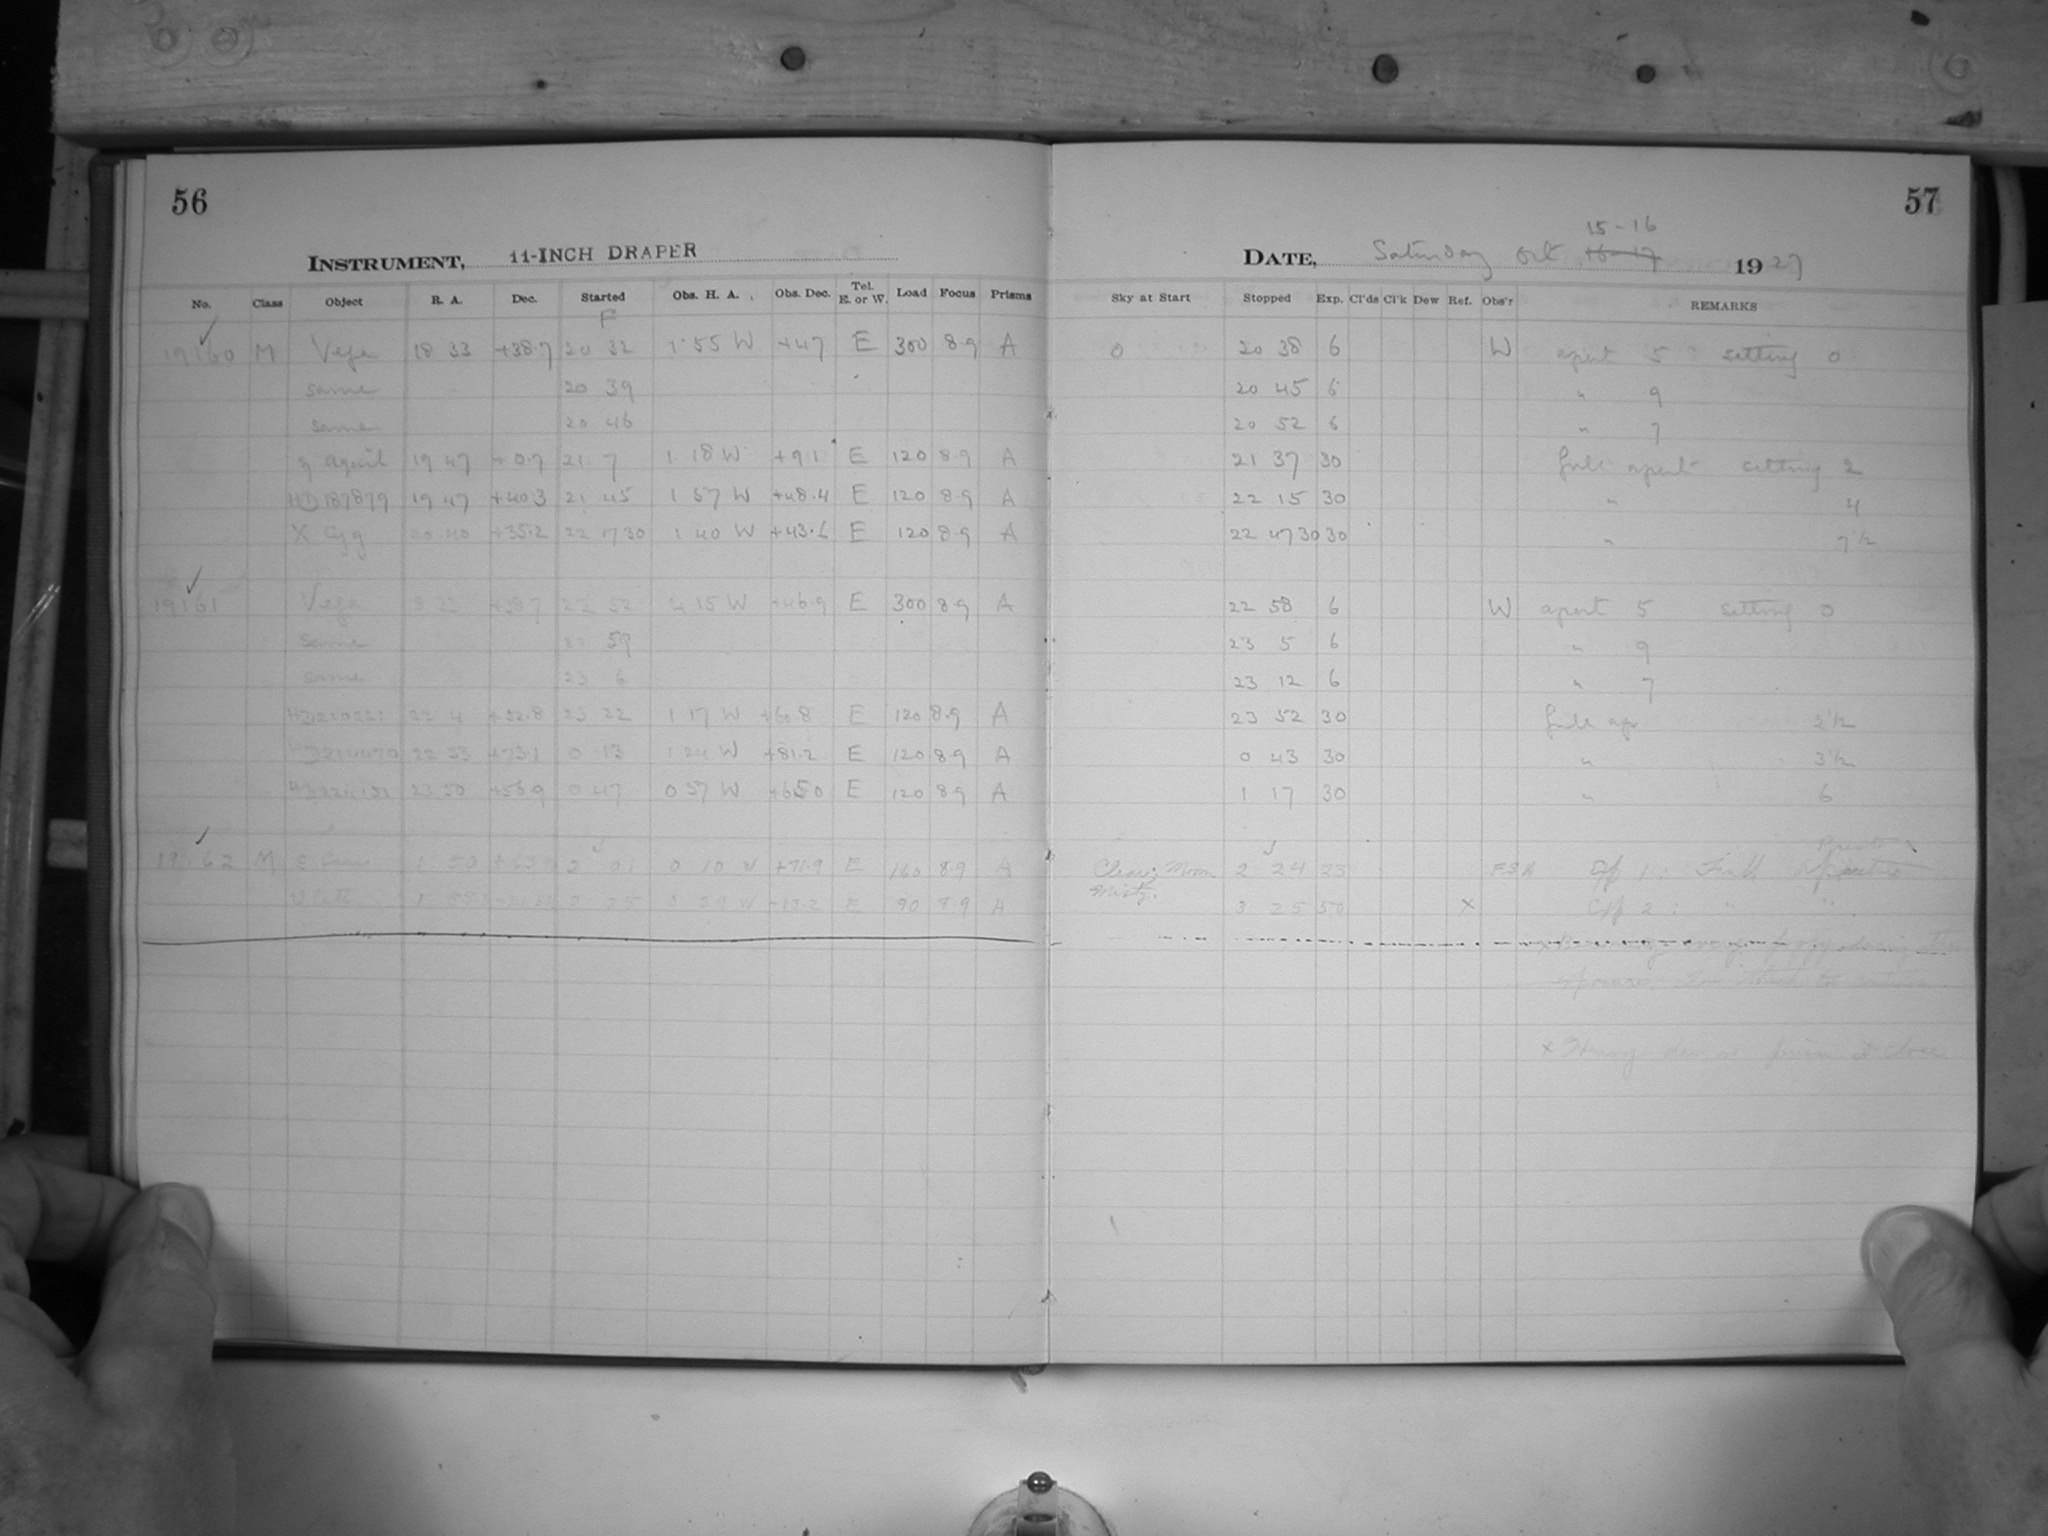 56
57
INSTRUMENT, 11-INCH DRAPER
15-16
DATE, Saturday Oct 16-17 1927
No. Class Object R. A. Dec. Started Obs. H. A. Obs. Dec. Tel. E. or W. Load Focus Prisms Sky at Start Stopped Exp. Cl'ds Cl'k Dew Ref. Obs'r REMARKS
F
19160 M Vega 18 33 +38.7 20 32 1 55 W +47 E 300 8.9 A 0 20 38 6 W apert 5 setting 0
same 20 39 20 45 6 " 9
same 20 46 20 52 6 " 7
η Aquil 19 47 +0.7 21 7 1 18 W +9.1 E 120 8.9 A 21 37 30 full apert setting 2
HD187879 19 47 +40.3 21 45 1 57 W +48.4 E 120 8.9 A 22 15 30 " 4
X Cyg 20 40 +35.2 22 17 30 1 40 W +43.6 E 120 8.9 A 22 47 30 30 " 7½
19161 Vega 18 33 +38.7 22 52 4 15 W +46.9 E 300 8.9 A 22 58 6 W apert 5 setting 0
same 22 59 23 5 6 " 9
same 23 6 23 12 6 " 7
HD210221 22 4 +52.8 23 22 1 17 W +60.8 E 120 8.9 A 23 52 30 full ap 2½
22 33 +73.1 0 13 1 24 W +81.2 E 120 8.9 A 0 43 30 " 3½
23 50 0 47 0 57 W +65.0 E 120 8.9 A 1 17 30 " 6
19162 M 1 50 2 01 0 10 W +71.9 E 160 8.9 A Clear; Moon 2 24 23 1: Full aperture
Misty. 1 2 35 W -13.2 E 90 8.9 A 3 25 50 x 2: " "
during the
exposure.
x Heavy dew on prism at close.